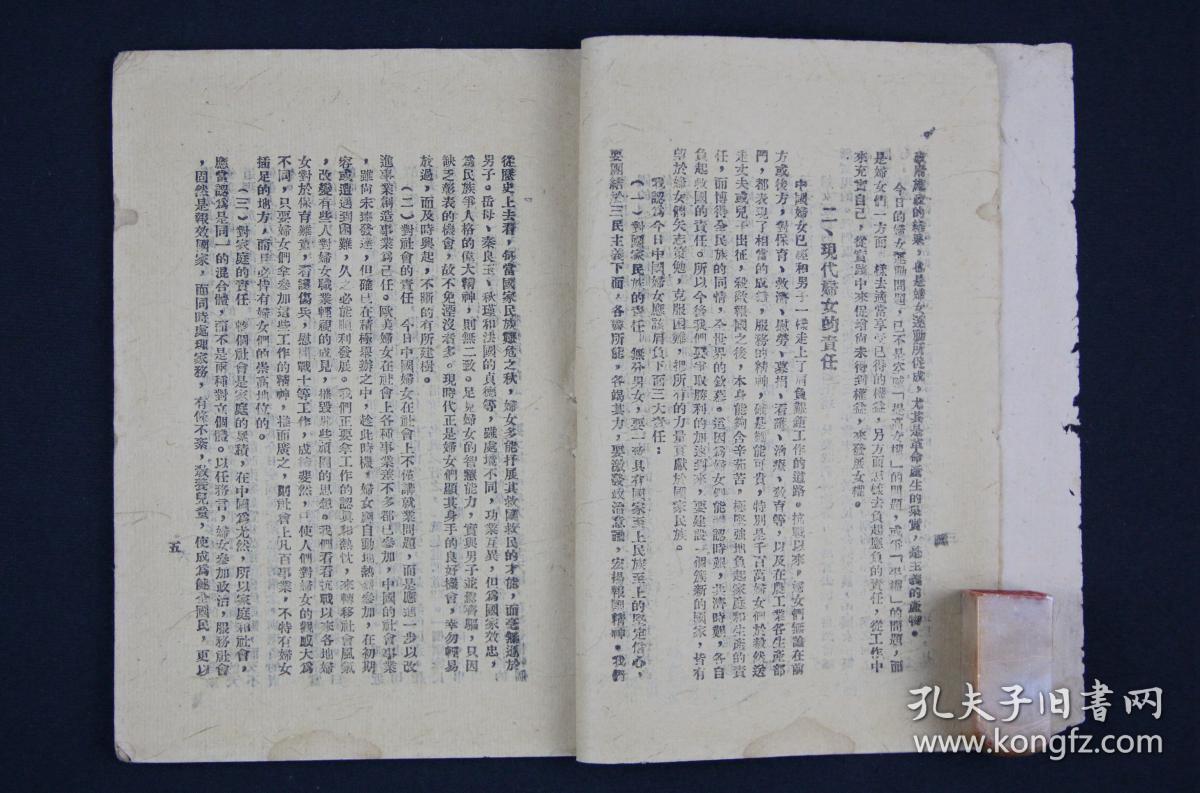 政府施政的結果，也是婦女運動所促成，尤其是革命產生的果實，是主義的產物。
今日的婦女運動問題，已不是空喊「提高女權」的問題，或爭「平權」的問題，而
是婦女們一方面一樣去適當享受已得的權益，另方面同樣去負起應負的責任，從工作中
來充實自己，從實踐中來保增尚未得到權益，來發展女權。
二、現代婦女的責任
中國婦女已經和男子一樣走上了肩負艱鉅工作的道路。抗戰以來，婦女們無論在前
方或後方，對保育、救濟、慰勞、募捐、看護、治療、教育等，以及在農工業各生產部
門，都表現了相當的成績，服務的精神，確是難能可貴，特別是千百萬婦女們於毅然送
走丈夫或兒子出征，殺敵報國之後，本身能夠含辛茹苦，極堅強地負起家庭和生產的責
任，而博得全民族的同情，全世界的欽慕。這因為婦女們能體認時艱，共濟時艱，各自
負起救國的責任。所以今後我們要爭取勝利的加速到來，要建設一個簇新的國家，皆有
望於婦女們矢志策勉，克服困難，把所有的力量貢獻於國家民族。
我認為今日中國婦女應該肩負下面三大責任：
（一）對國家民族的責任　無分男女，要一致具有國家至上民族至上的堅定信心，
要團結於三民主義下面，各盡所能，各竭其力，要激發政治意識，宏揚報國精神。我們
從歷史上去看，每當國家民族艱危之秋，婦女多能抒展其救國救民的才能，而毫無遜於
男子。岳母、秦良玉、秋瑾和法國的貞德等，雖處境不同，功業互異，但為國家效忠，
為民族爭人格的偉大精神，則無二致。足見婦女的智慧能力，實與男子並駕齊驅，只因
缺乏彰表的機會，故不免湮沒者多。現時代正是婦女們顯其身手的良好機會，幸勿輕易
放過，而及時興起，不斷的有所建樹。
（二）對社會的責任　今日中國婦女在社會上不僅講就業問題，而是應進一步以改
進事業創造事業為己任。歐美婦女在社會上各種事業差不多都已參加，中國的社會事業
，雖尚未達發達，但確已在積極舉辦之中，趁此時機，婦女應自動地熱誠參加，在初期
容或遭遇到困難，久之必能順利發展。我們正要拿工作的認真和熱忱，來轉移社會風氣
，改變有些人對婦女職業輕視的成見，摧毀那些頑固的思想。我們看看抗戰以來各地婦
女對於保育難童，看護傷兵，慰問戰士等工作，成績斐然，已使人們對婦女的觀感大為
不同，只要婦女們拿參加這些工作的精神，推而廣之，則社會上凡百事業，不特有婦女
插足的地方，而且必持有婦女們的崇高地位的。
（三）對家庭的責任　整個社會是家庭的累積，在中國為尤然，所以家庭和社會，
應當認為是同一的混合體，而不是兩種對立個體。以任務言，婦女參加政治，服務社會
，固然是報效國家，而同時處理家務，有條不紊，教養兒童，使成為健全國民，更以
五
孔夫子旧书网
www.kongfz.com